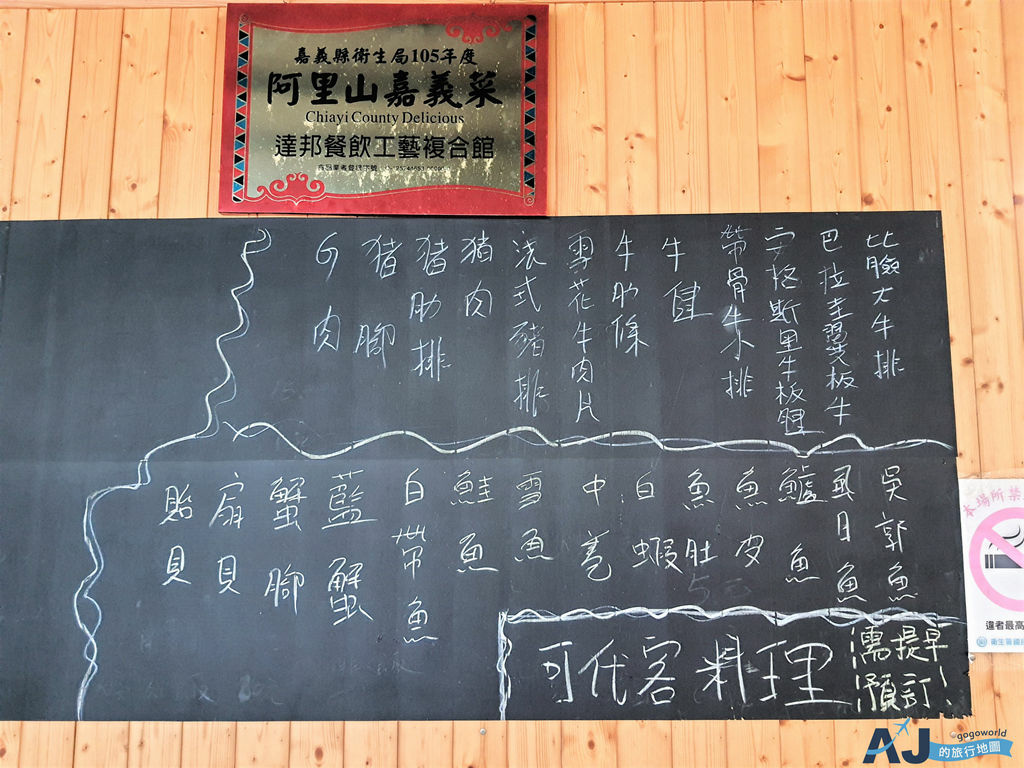 嘉義縣衛生局105年度
阿里山嘉義菜
Chiayi County Delicious
達邦餐飲工藝複合館
比臉大牛排
巴拉圭翼板牛
安格斯里牛板腱
帶骨牛小排
牛健
牛肋條
雪花牛肉片
法式豬排
猪肉
猪肋排
猪腳
羊肉
吳郭魚
虱目魚
鱸魚
魚皮
魚肚
白蝦
中卷
雪魚
鮭魚
白帶魚
藍蟹
蟹腳
扇貝
貽貝
可代客料理
濡提早
預訂!
本場所禁
違者最高
AJ
gogoworld
的旅行地圖